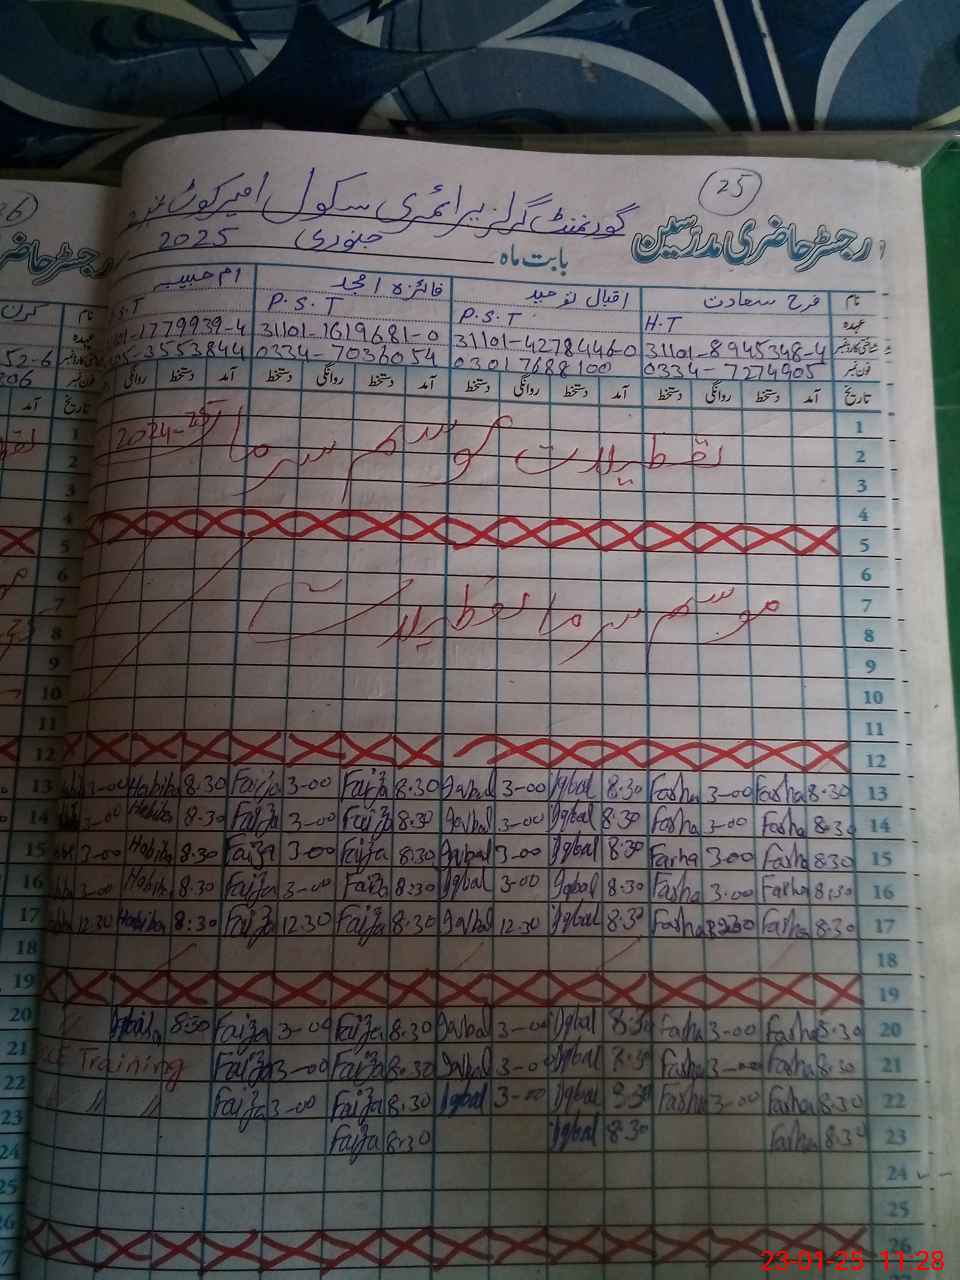 25
رجسٹر حاضری مدرسین
گورنمنٹ گرلز پرائمری سکول امیر کوٹ
بابت ماہ جنوری 2025
نام فرح سعادت اقبال نوید فائزہ امجد ام حبیبہ
عہدہ H.T P.S.T P.S.T S.T
31101-8945348-4 31101-4278446-0 31101-1619681-0 1779939-4
فون نمبر 0334-7274905 03017688100 0334-7036054 3553844
تاریخ آمد دستخط روانگی دستخط آمد دستخط روانگی دستخط آمد دستخط روانگی دستخط آمد دستخط روانگی
1
2 تعطیلات موسم سرما 2024-25
3
4
5
6
7 موسم سرما تعطیلات
8
9
10
11
12
13 3-00 Habiba 8.30 Faiza 3-00 Faiza 8.30 Iqbal 3-00 Iqbal 8.30 Farha 3-00 Farha 8.30 13
14 3-00 Habiba 8.30 Faiza 3-00 Faiza 8.30 Iqbal 3-00 Iqbal 8.30 Farha 3-00 Farha 8.30 14
15 3-00 Habiba 8.30 Faiza 3-00 Faiza 8.30 Iqbal 3-00 Iqbal 8.30 Farha 3-00 Farha 8.30 15
16 3-00 Habiba 8.30 Faiza 3-00 Faiza 8.30 Iqbal 3-00 Iqbal 8.30 Farha 3.00 Farha 8.30 16
17 12.30 Habiba 8.30 Faiza 12.30 Faiza 8.30 Iqbal 12.30 Iqbal 8.30 Farha Farha 8.30 17
18 18
19 19
20 Habiba 8.30 Faiza 3-00 Faiza 8.30 Iqbal 3-00 Iqbal 8.30 Farha 3-00 Farha 8.30 20
21 Training Faiza 3-00 Faiza 8.30 Iqbal 3-00 Iqbal 8.30 Farha 3-00 Farha 8.30 21
22 〃 〃 〃 Faiza 3-00 Faiza 8.30 Iqbal 3-00 Iqbal 8.30 Farha 3-00 Farha 8.30 22
23 Faiza 8.30 Iqbal 8.30 Farha 8.30 23
24 24
25 25
26 26
23-01-25 11:28